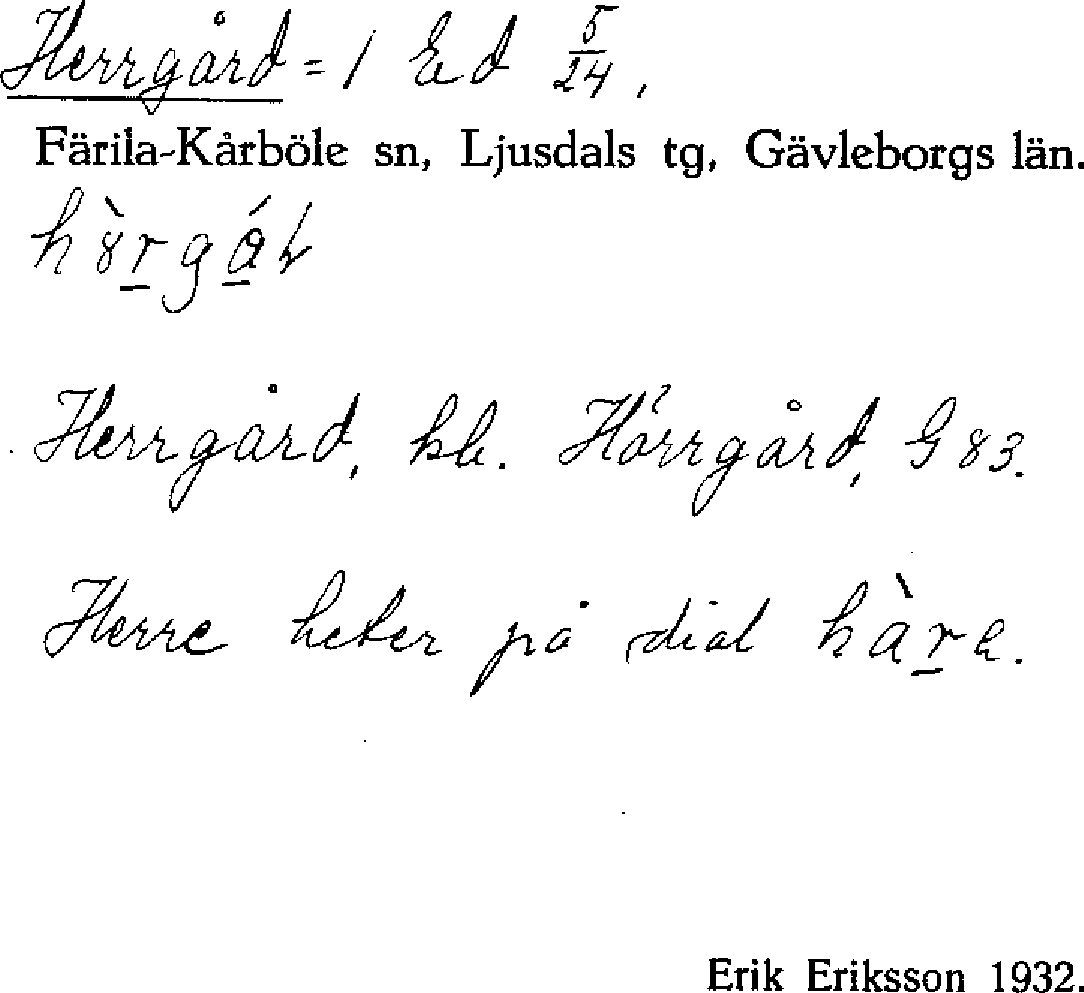 Herrgård = 1 Ed 5/24.
Färila-Kårböle sn, Ljusdals tg, Gävleborgs län.
Herrgård, kb. Hörrgård, G 83.
Herre heter på dial hàre.
Erik Eriksson 1932.